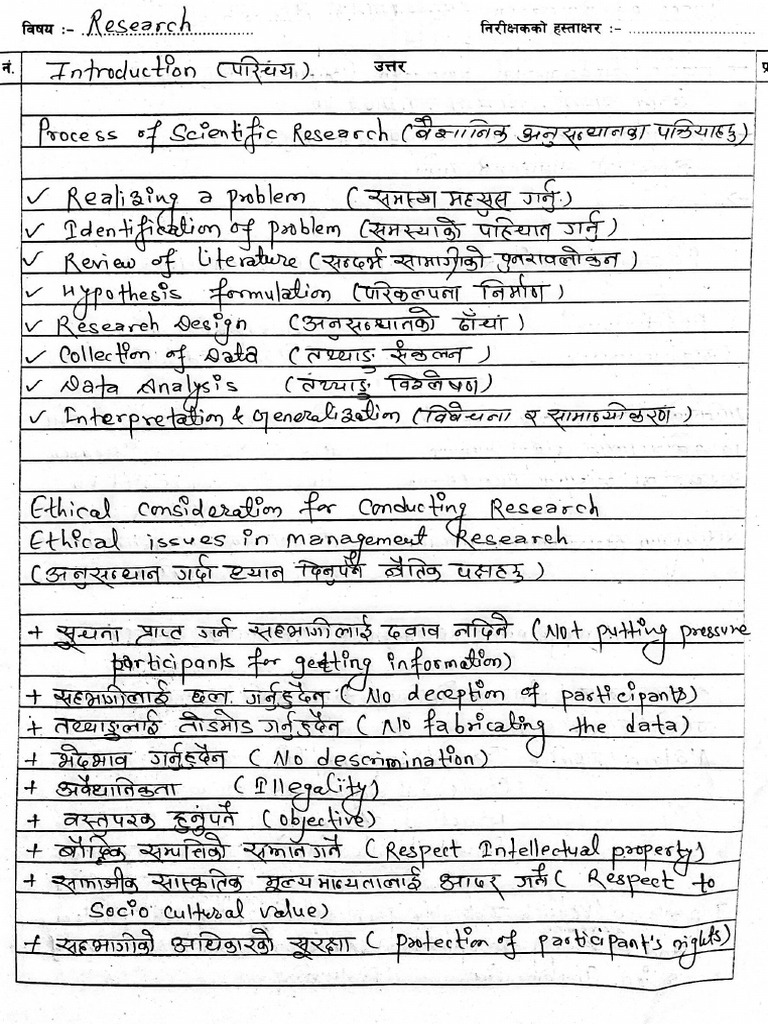 विषय :- Research
निरीक्षकको हस्ताक्षर :-
नं. Introduction (परिचय) उत्तर
Process of Scientific Research (वैज्ञानिक अनुसन्धानका प्रक्रियाहरु)
✓ Realizing a problem (समस्या महसुस गर्नु)
✓ Identification of problem (समस्याको पहिचान गर्नु)
✓ Review of literature (सन्दर्भ सामाग्रीको पुनरावलोकन)
✓ Hypothesis formulation (परिकल्पना निर्माण)
✓ Research Design (अनुसन्धानको ढाँचा)
✓ Collection of Data (तथ्याङ्क संकलन)
✓ Data Analysis (तथ्याङ्क विश्लेषण)
✓ Interpretation & Generalization (विवेचना र सामान्यीकरण)
Ethical consideration for Conducting Research
Ethical issues in management Research
(अनुसन्धान गर्दा ध्यान दिनुपर्ने नैतिक पक्षहरु)
+ सूचना प्राप्त गर्न सहभागीलाई दवाव नदिने (Not putting pressure
participants for getting information)
+ सहभागीलाई छल गर्नुहुदैन (No deception of participants)
+ तथ्याङ्कलाई तोडमोड गर्नुहुदैन (No fabricating the data)
+ भेदभाव गर्नुहुदैन (No descrimination)
+ अवैधानिकता (Illegality)
+ वस्तुपरक हुनुपर्ने (objective)
+ बौद्धिक सम्पत्तिको सम्मान गर्ने (Respect Intellectual property)
+ सामाजीक सास्कृतिक मूल्य मान्यतालाई आदर गर्ने (Respect to
Socio cultural value)
+ सहभागीको अधिकारको सुरक्षा (protection of participant's rights)